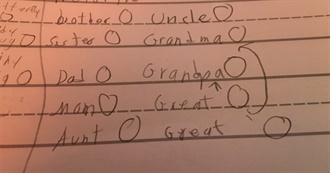 brother Uncle
Sister Grandma
Dad Grandpa
Mam Great
Aunt Great